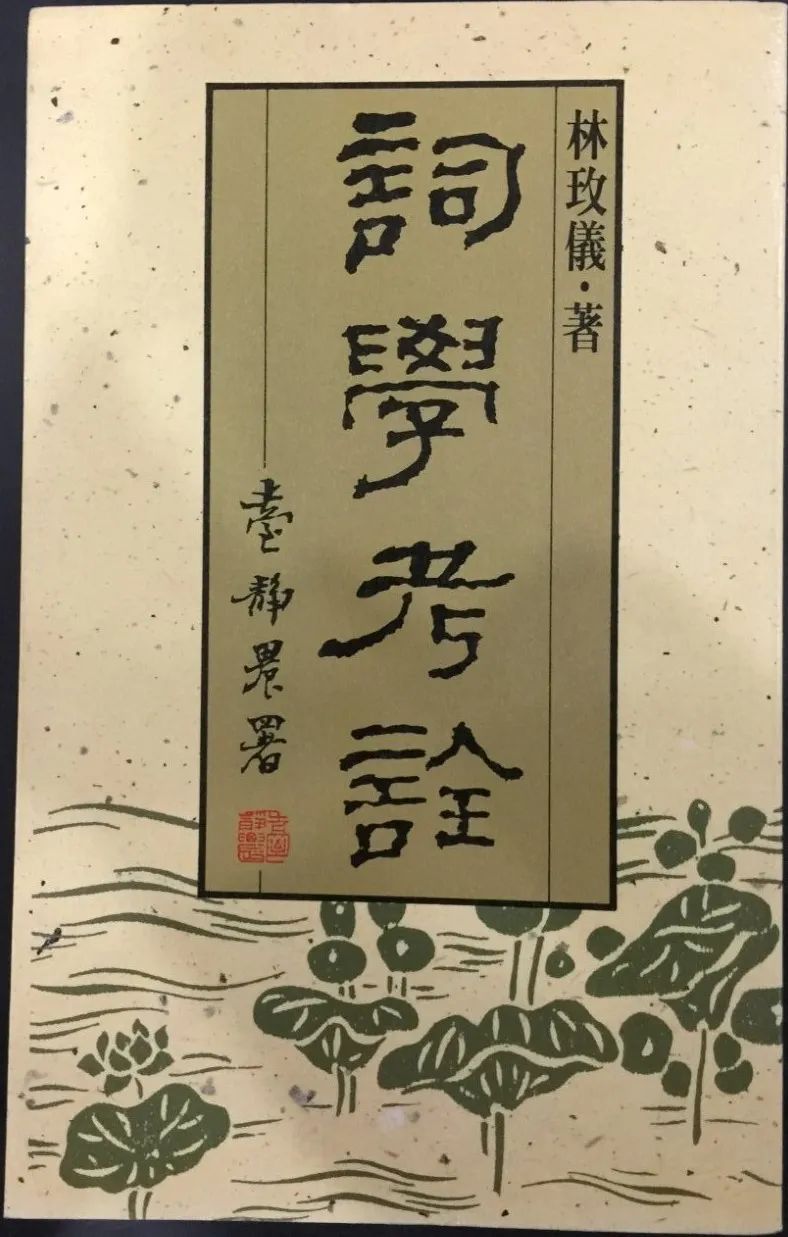 林玫儀・著
詞學考詮
臺静農署